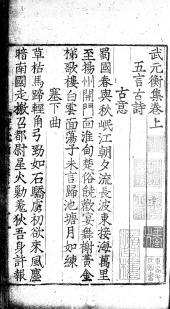 武元衡集卷上
五言古詩
古意
蜀國春與秋岷江朝夕流長波東接海萬里
至揚州開門面淮甸楚俗饒歡宴舞榭黃金
梯歌樓白雲面蕩子未言歸池塘月如練
塞下曲
草枯馬蹄輕角弓勁如石驕虜初欲來風塵
暗南國走檄召都尉星火勦羌狄吾身許報